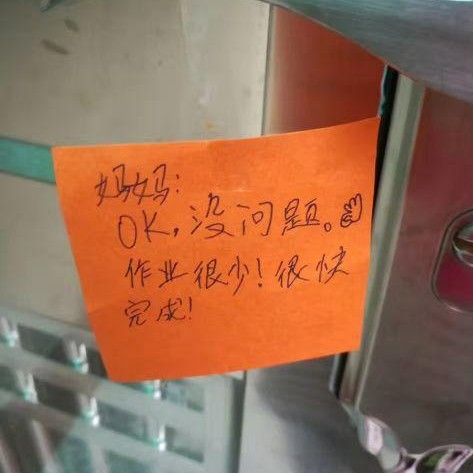 妈妈:
OK,没问题。👌
作业很少!很快
完成!